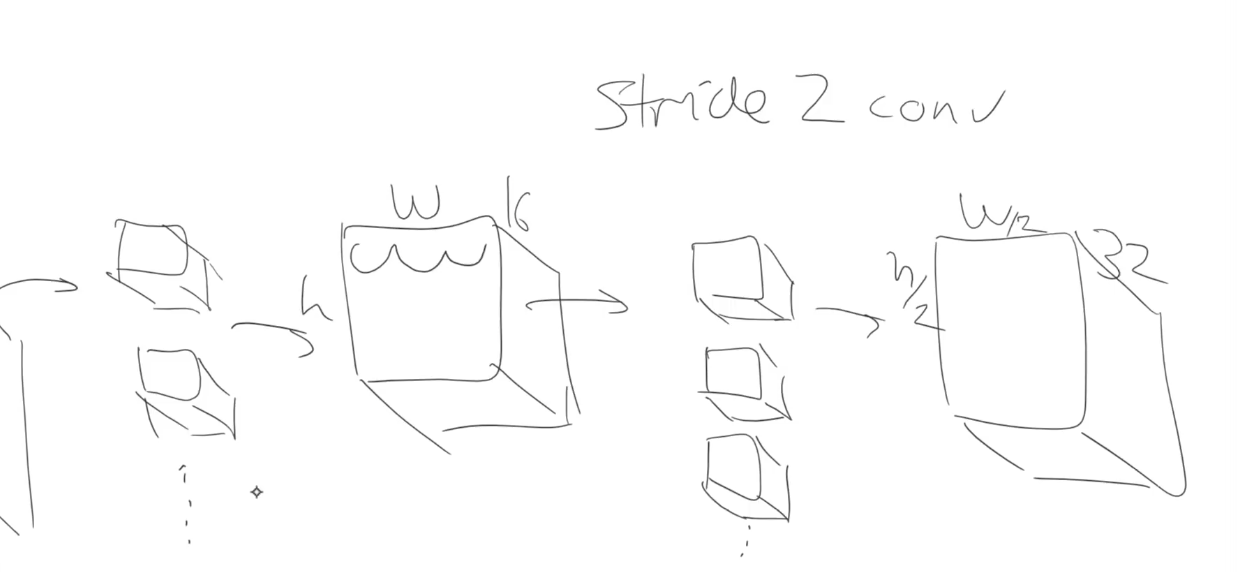 Stride 2 conv
w
16
h
w/2
32
h/2